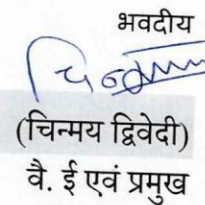 भवदीय
(चिन्मय द्विवेदी)
वै. ई एवं प्रमुख